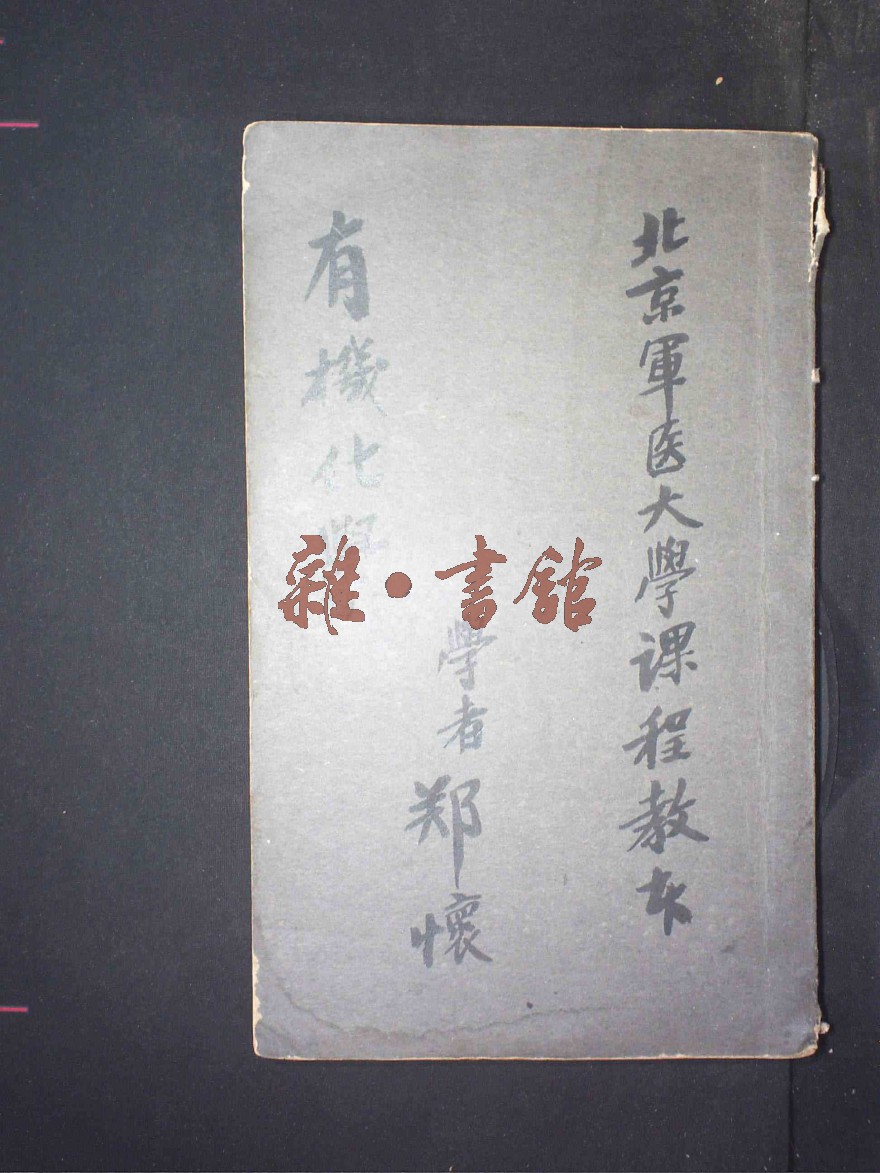 北京軍医大學课程教本
學者郑懷
有機化學
雜·書館